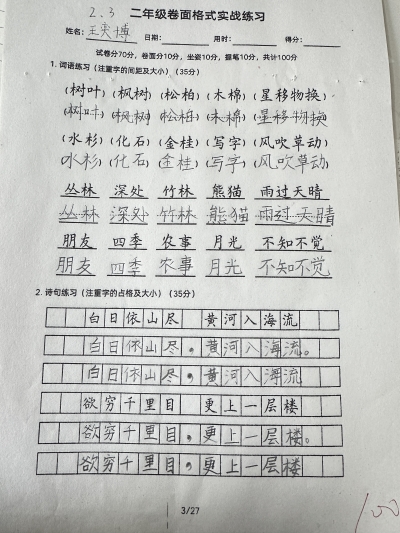 2.3 二年级卷面格式实战练习
姓名：王奕博 日期： 用时： 得分：
试卷分70分，卷面分10分，坐姿10分，握笔10分，共计100分
1. 词语练习（注重字的间距及大小）（35分）
(树叶) (枫树) (松柏) (木棉) (星移物换)
(树叶) (枫树) (松柏) (木棉) (星移物换)
(水杉) (化石) (金桂) (写字) (风吹草动)
(水杉) (化石) (金桂) (写字) (风吹草动)
丛林 深处 竹林 熊猫 雨过天晴
丛林 深处 竹林 熊猫 雨过天晴
朋友 四季 农事 月光 不知不觉
朋友 四季 农事 月光 不知不觉
2. 诗句练习（注重字的占格及大小）（35分）
白日依山尽 黄河入海流
白日依山尽，黄河入海流。
白日依山尽，黄河入海流
欲穷千里目 更上一层楼
欲穷千里目，更上一层楼。
欲穷千里目，更上一层楼
3/27
100